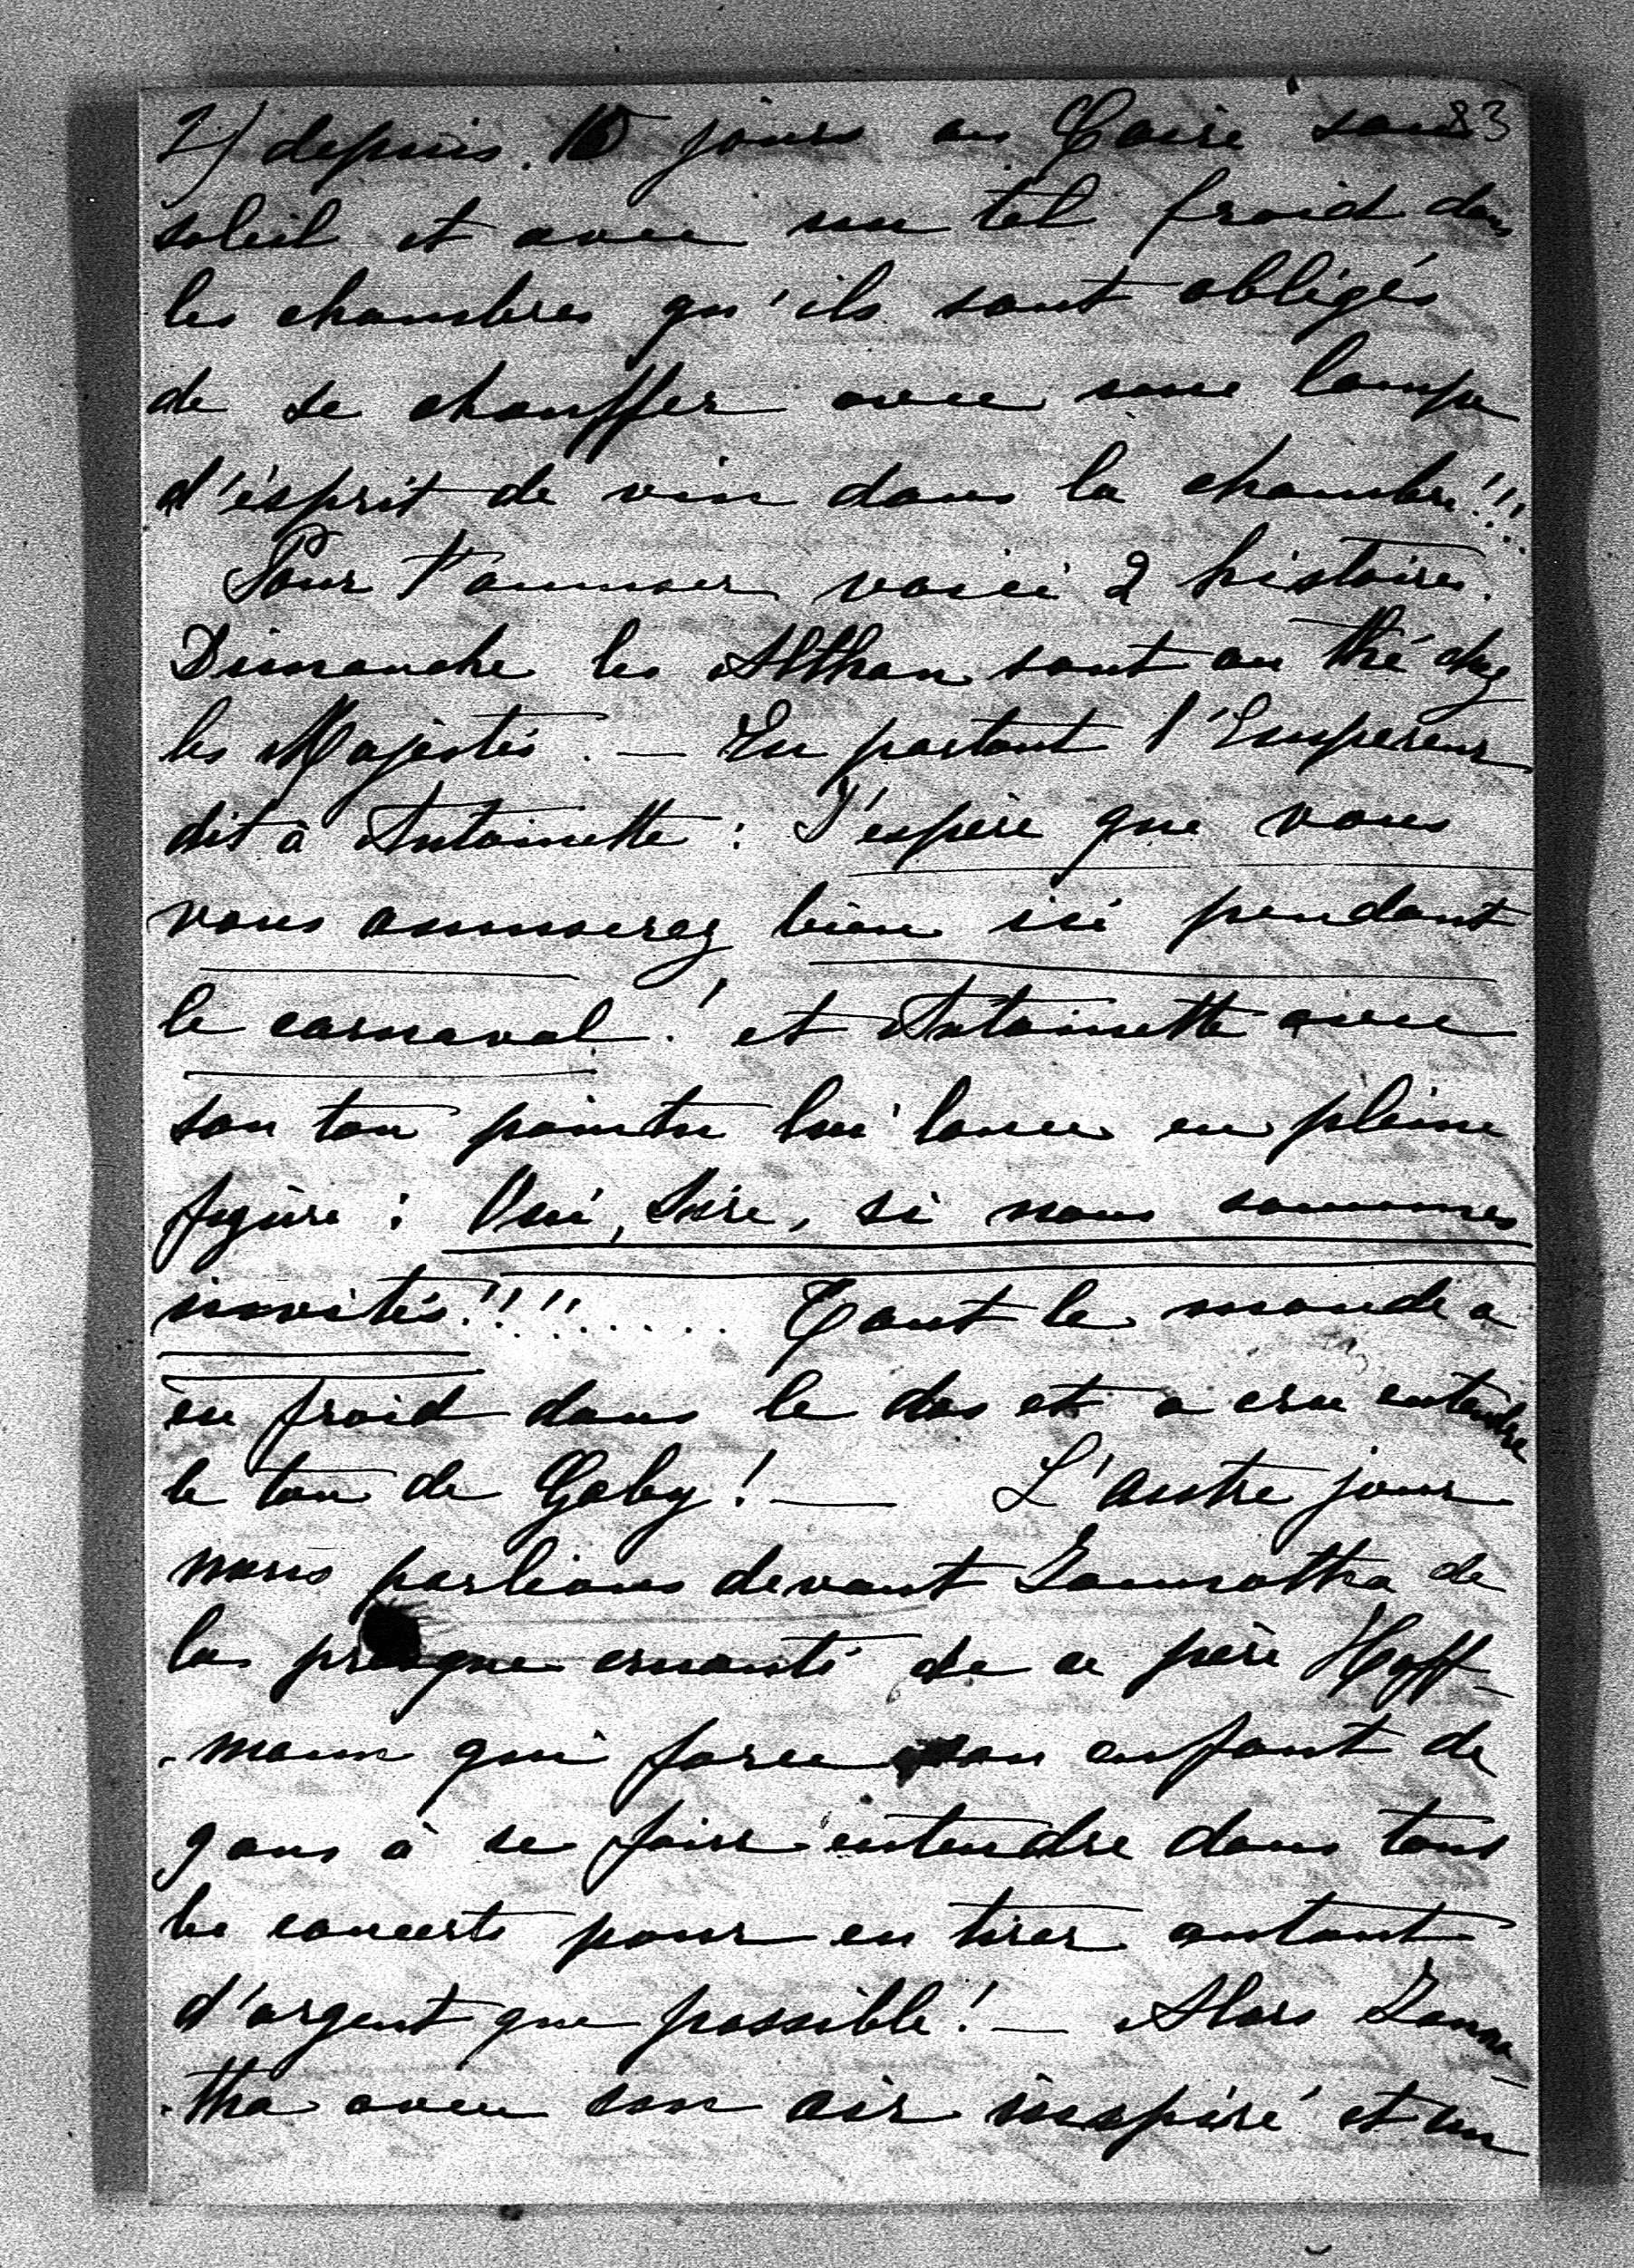 2/ depuis 10 jours au Caire sans 83
soleil et avec un tel froid dans
les chambres qu'ils sont obligés
de se chauffer avec une lampe
d'ésprit de vin dans la chambre!!!
Pour t'amuser voici 2 histoires.
Dimanche les Althan sont au thé chez
les Majestés. — En partant l'Empereur
dit à Antoinette : J'espère que vous
vous amuserez bien ici pendant
le carnaval! et Antoinette avec
son ton pointu lui lance en pleine
figure : Oui, Sire, si nous sommes
invités!!!!....... Tout le monde a
eu froid dans le dos et a cru entendre
le ton de Gaby! — L'autre jour
nous parlions devant Jannotha de
la presque cruauté de ce père Hoff-
-mann qui force son enfant de
9 ans à se faire entendre dans tous
les concerts pour en tirer autant
d'argent que possible! — Alors Janno-
-tha avec son air inspiré et un